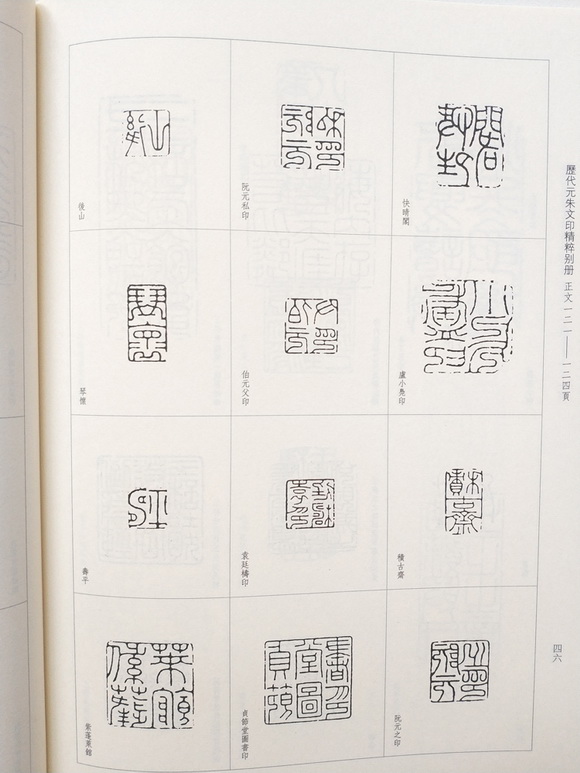 歷代元朱文印精粹别册 正文一二一——一二四頁
快晴閣
盧小鳧印
積古齋
阮元之印
阮元私印
伯元父印
袁廷檮印
貞節堂圖書印
後山
琴憶
壽平
紫蓬萊館
四六